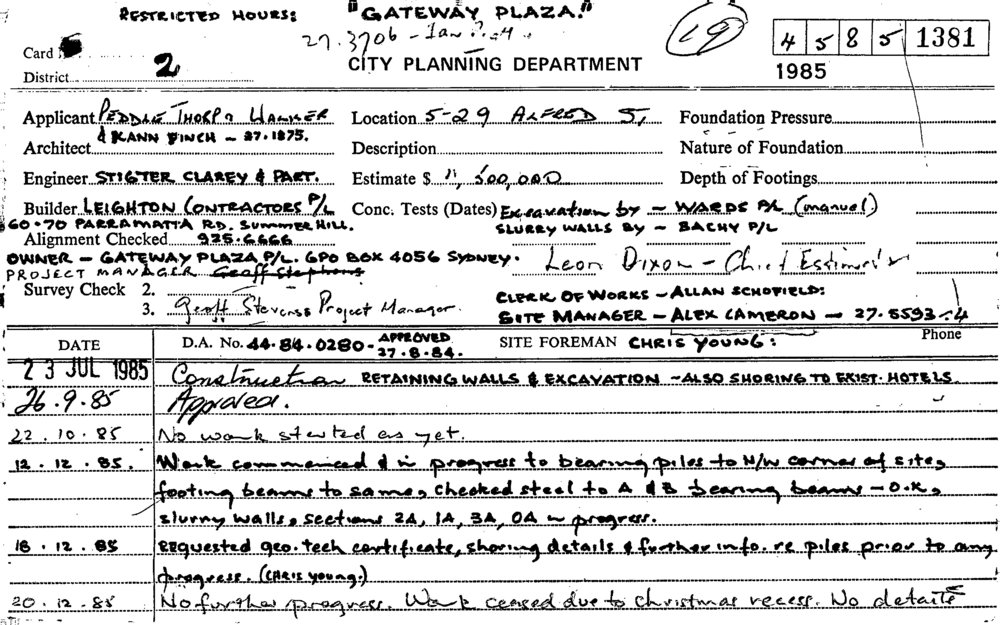 RESTRICTED HOURS: "GATEWAY PLAZA."
27.3706 - Ian
19
45 85 1381
Card
CITY PLANNING DEPARTMENT
1985
District 2
Applicant PEDDLE THORP & WALKER Location 5-29 ALFRED ST, Foundation Pressure
& KANN FINCH - 27.1875.
Architect Description Nature of Foundation
Engineer STIGTER CLAREY & PART. Estimate $ 11,500,000 Depth of Footings
Builder LEIGHTON CONTRACTORS P/L Conc. Tests (Dates) Excavation by - WARDS P/L (manuel)
60-70 PARRAMATTA RD. SUMMER HILL. SLURRY WALLS BY - BACHY P/L
Alignment Checked 925.6666
OWNER - GATEWAY PLAZA P/L. GPO BOX 4056 SYDNEY. Leon Dixon - Chief
PROJECT MANAGER Geoff Stephens
Survey Check 2. CLERK OF WORKS - ALLAN SCHOFIELD:
3. Geoff Stevens Project Manager SITE MANAGER - ALEX CAMERON - 27.5593-4
DATE D.A. No. 44.84.0280 - APPROVED 27.8.84. SITE FOREMAN CHRIS YOUNG: Phone
23 JUL 1985 Construction RETAINING WALLS & EXCAVATION - ALSO SHORING TO EXIST. HOTELS
26.9.85 Approved.
22.10.85 No work started as yet.
12.12.85. Work commenced & in progress to bearing piles to N/W corner of site,
footing beams to same, checked steel to A & B bearing beams - O.K,
slurry walls, sections 2A, 1A, 3A, 0A in progress.
18.12.85 Requested geo. tech certificate, shoring details & further info. re piles prior to any
progress. (Chris Young.)
20.12.85 No further progress. Work ceased due to Christmas recess. No details